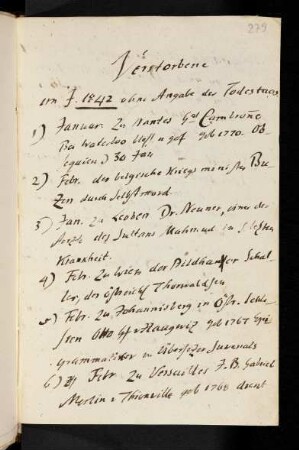 279
Verstorbene
im J. 1842 ohne Angabe des Todestages
1) Januar. Zu Nantes Gal Cambronne
bei Waterloo bless u gef. geb 1770. Ob-
sequien d 30 Jan
2) Febr. der belgische Kriegsminister Bu-
zen durch Selbstmord.
3) Jan. zu Leoben Dr. Neuner, einer der
Aerzte des Sultans Mahmud in letzter
Krankheit.
4) Febr. zu Wien der Bildhauer Schal-
ler, der östreich Thorwaldsen
5) Febr. Zu Johannisberg in Östr. Schle-
sien Otto Gf v Haugwitz geb 1767 Epi-
grammatiker u Übersetzer Juvenals
6) Febr. Zu Versailles J. B. Gabriel
Merlin v Thionville geb 1768